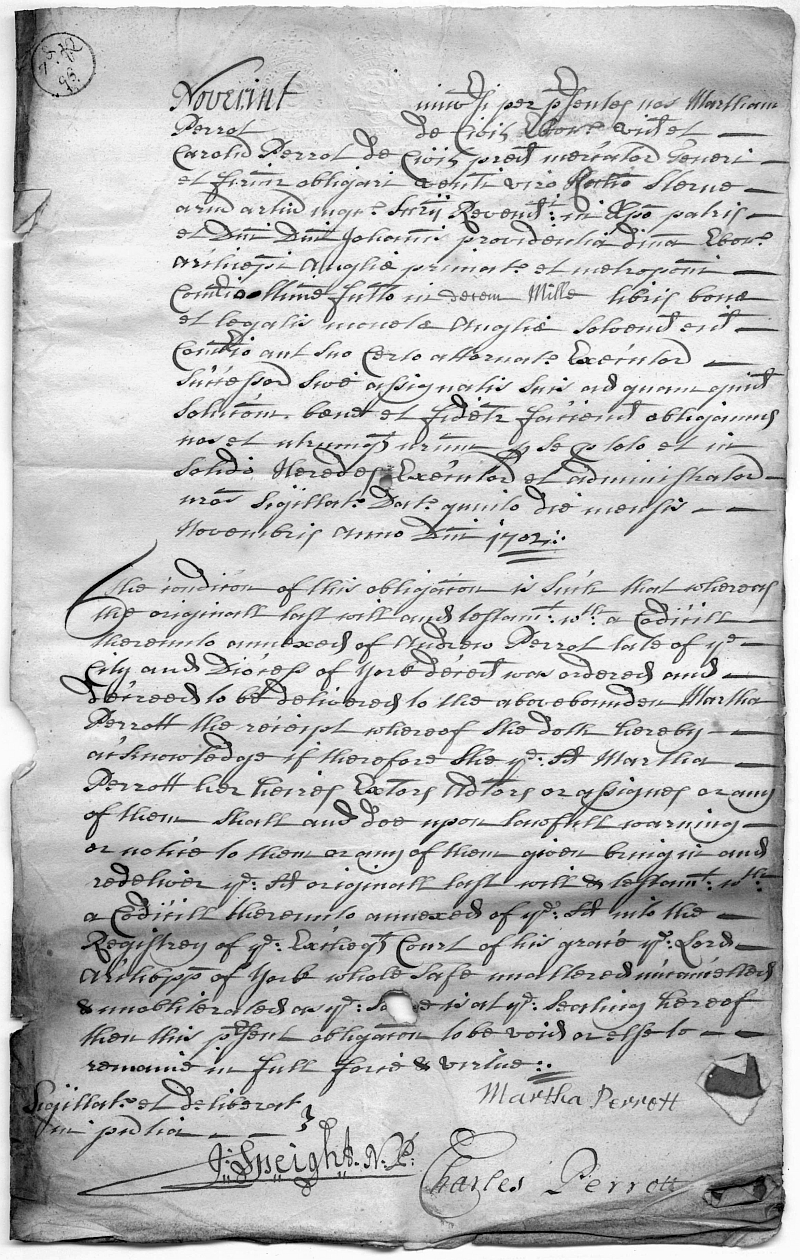 Noverint univ'si per p'sentes nos Martham
Perrot de Civit Ebor. vid et
Carolu Perrot de Civit pred mercator Teneri
et firmit obligari venti viro Sterne
arm Revend: in Xpo patris
et Dni Dni Johannis providentia dina Ebor.
Anglie primat. et metroponi
in decem Mille libris bone
et legalis monete Anglie solvend eid
aut suo Certo attornat. Executor
Successor sive assignatis suis ad quam quid
soluc'on. bene et fidelr faciend obligamus
nos et utrumq nrum p se p toto et in
solido Heredes Executor et administrator
nros Sigillat. Dat. quinto die mensis
Novembris anno Dni 1702:
The condic'on of this obligac'on is such that whereas
the originall last will and testamt: wth: a Codicill
thereunto annexed of Andrew Perrot late of ye
City and Diocess of York deced was ordered and
decreed to be delivered to the abovebounden Martha
Perrott the receipt whereof she doth hereby
acknowledge if therefore she ye: sd Martha
Perrott her heires Extors Adtors or assignes or any
of them shall and doe upon lawfull warning
or notice to them or any of them given bring in and
redeliver ye: sd originall last will & testamt: wth:
a Codicill thereunto annexed of ye: sd into the
Registrey of ye: Excheqr Court of his grace ye: Lord
Archbpp of York whole safe unaltered uncancelled
& unobliterated as ye: same is at ye: Sealing hereof
then this p'sent obligac'on to be void or else to
remaine in full force & virtue:
Martha Perrott
Sigillat. et deliberat
in p'ntia
J: Speight. N.P.
Charles Perrott